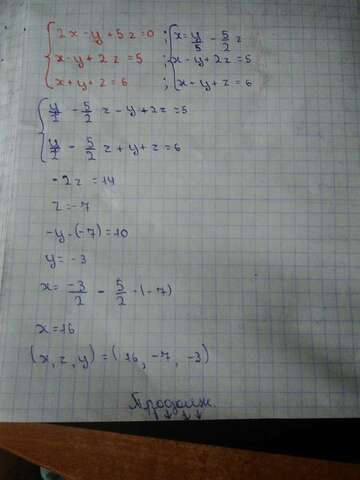 2x-y+5z=0 ; x=y/5 - 5/2 z
x-y+2z=5 ; x-y+2z=5
x+y+z=6 ; x+y+z=6
y/2 - 5/2 z - y+2z=5
y/2 - 5/2 z + y + z = 6
-2z=14
z=-7
-y-(-7)=10
y=-3
x= -3/2 - 5/2 ·(-7)
x=16
(x, z, y) = (16, -7, -3)
Продолж. ↓↓↓